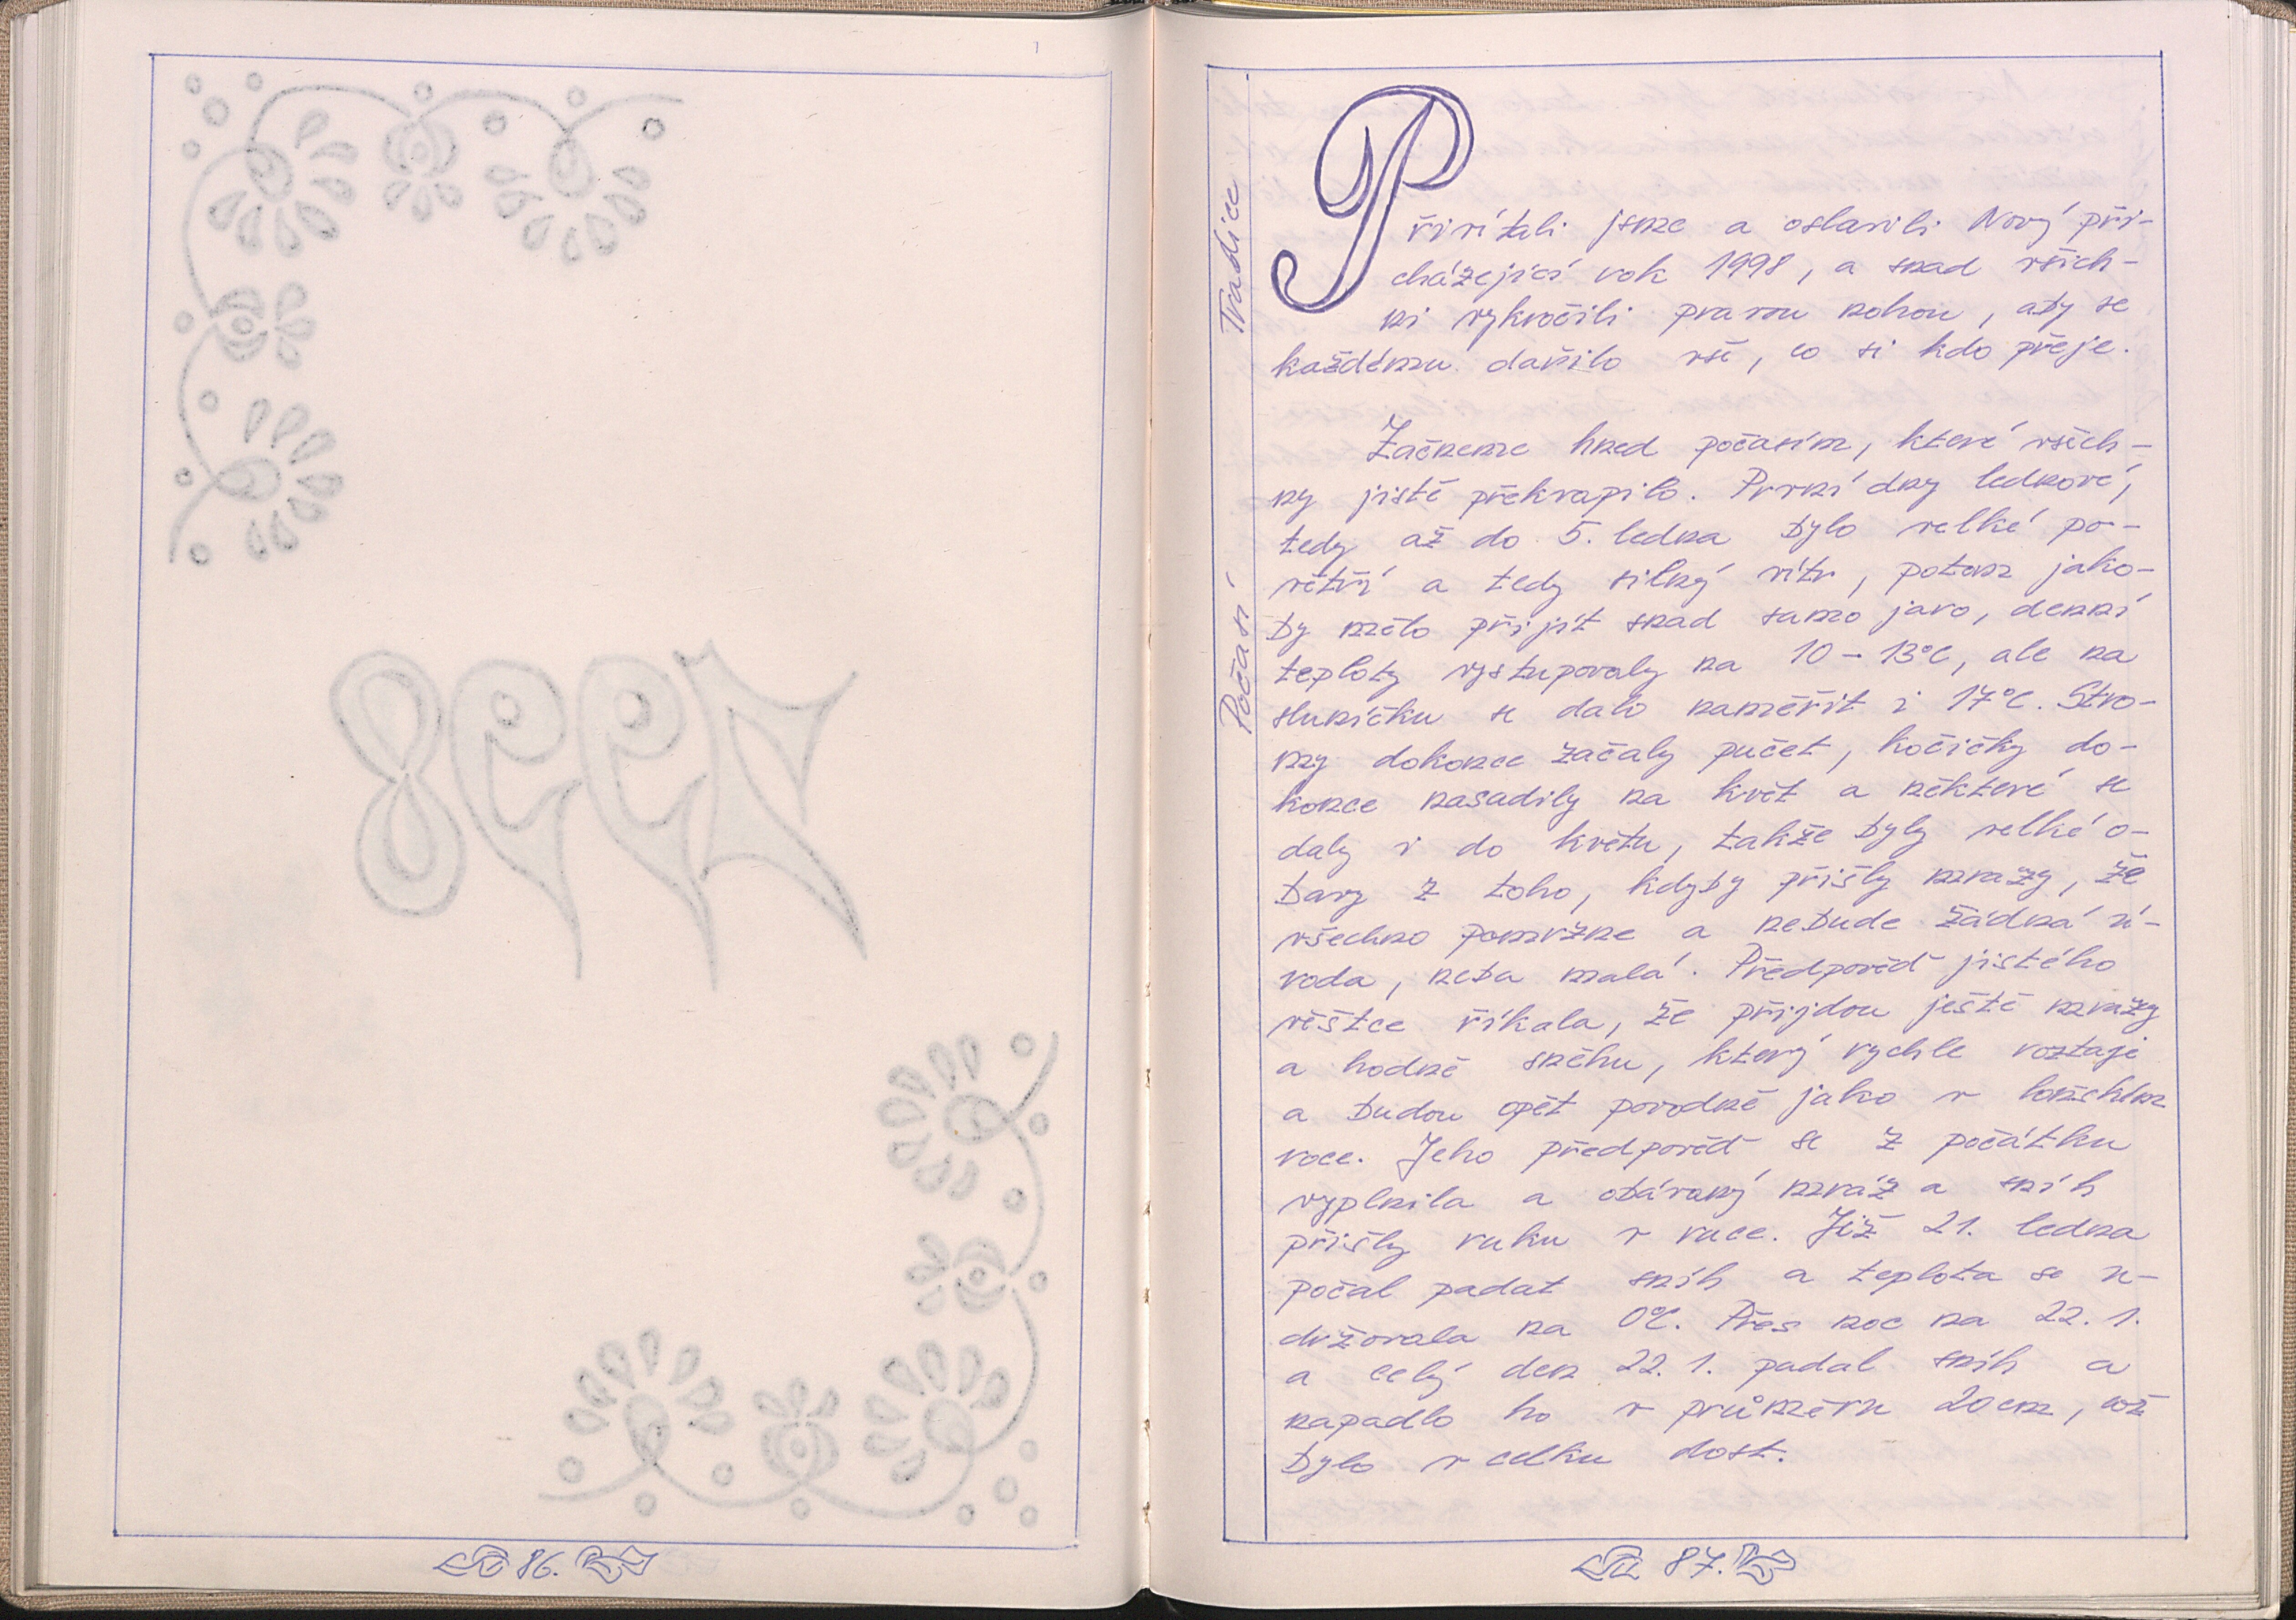 1998
86.
Tradice
Přivítali jsme a oslavili Nový při-
cházející rok 1998, a snad všich-
ni vykročili pravou nohou, aby se
každému dařilo vše, co si kdo přeje.
Počasí
Začneme hned počasím, které všich-
ny jistě překvapilo. První dny lednové,
tedy až do 5. ledna bylo velké po-
větří a tedy silný vítr, potom jako-
by mělo přijít snad samo jaro, denní
teploty vystupovaly na 10 - 13°C, ale na
sluníčku se dalo naměřit i 17°C. Stro-
my dokonce začaly pučet, kočičky do-
konce nasadily na květ a některé se
daly i do květu, takže byly velké o-
bavy z toho, kdyby přišly mrazy, že
všechno pomrzne a nebude žádná ú-
roda, neba malá. Předpověď jistého
věštce říkala, že přijdou ještě mrazy
a hodně sněhu, který rychle roztaje
a budou opět povodně jako v loňském
roce. Jeho předpověď se z počátku
vyplnila a obávaný mráz a sníh
přišly ruku v ruce. Již 21. ledna
počal padat sníh a teplota se u-
držovala na 0°C. Přes noc na 22. 1.
a celý den 22. 1. padal sníh a
napadlo ho v průměru 20 cm, což
bylo v celku dost.
87.